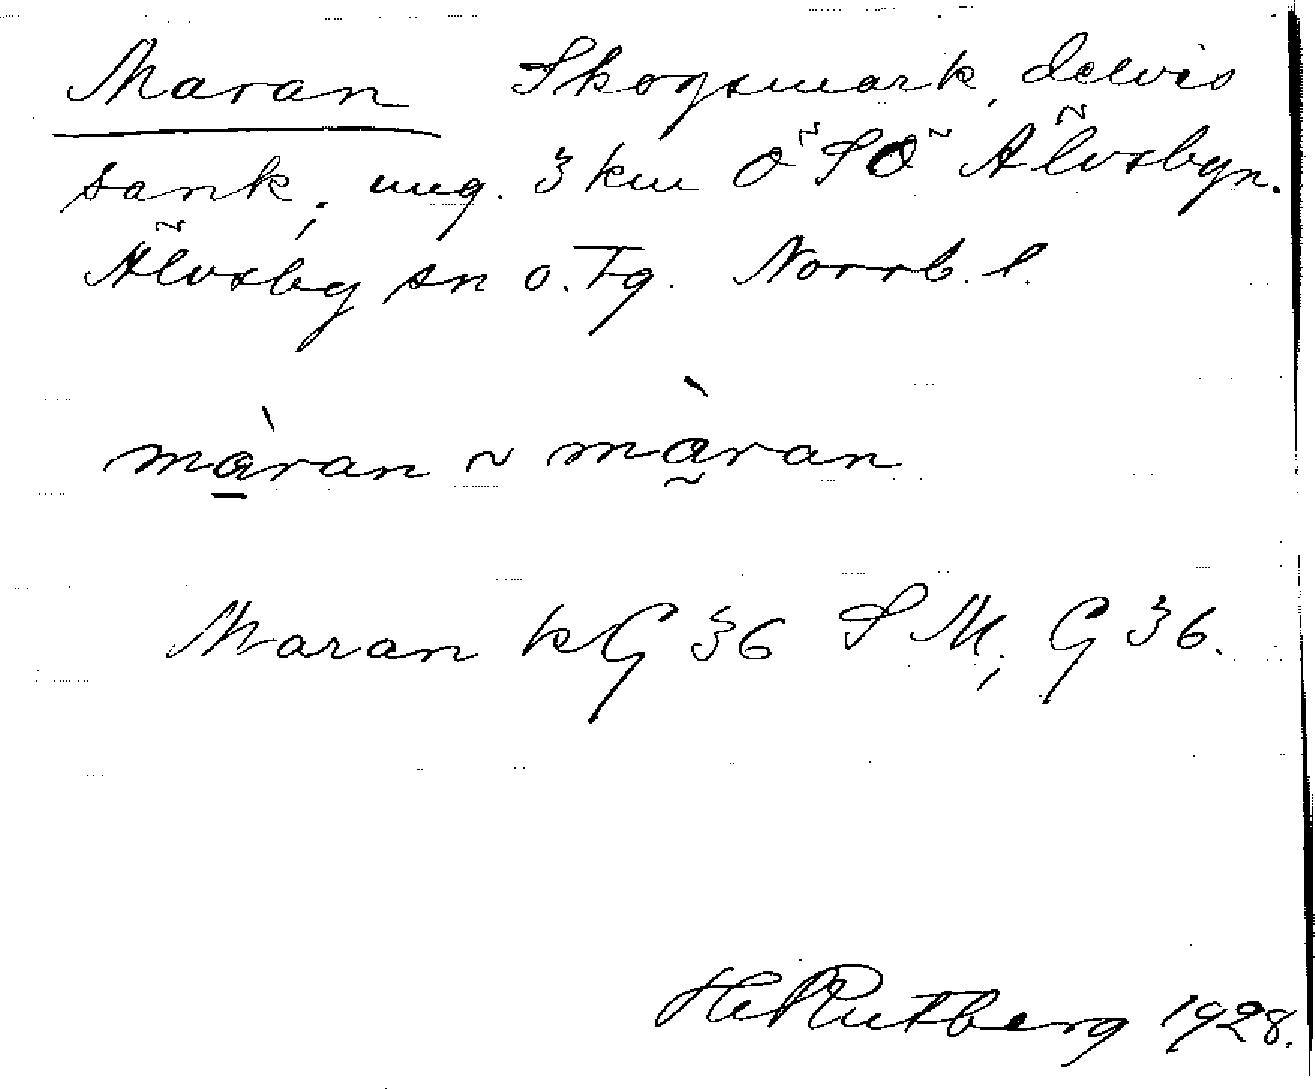 Maran Skogsmark, delvis
sank, ung. 3 km Ö SÖ Älvsbyn.
Älvsby sn o. Tg. Norrb. l.
màran ~ màran
Maran kG 36 S M, G 36.
He Rutberg 1928.